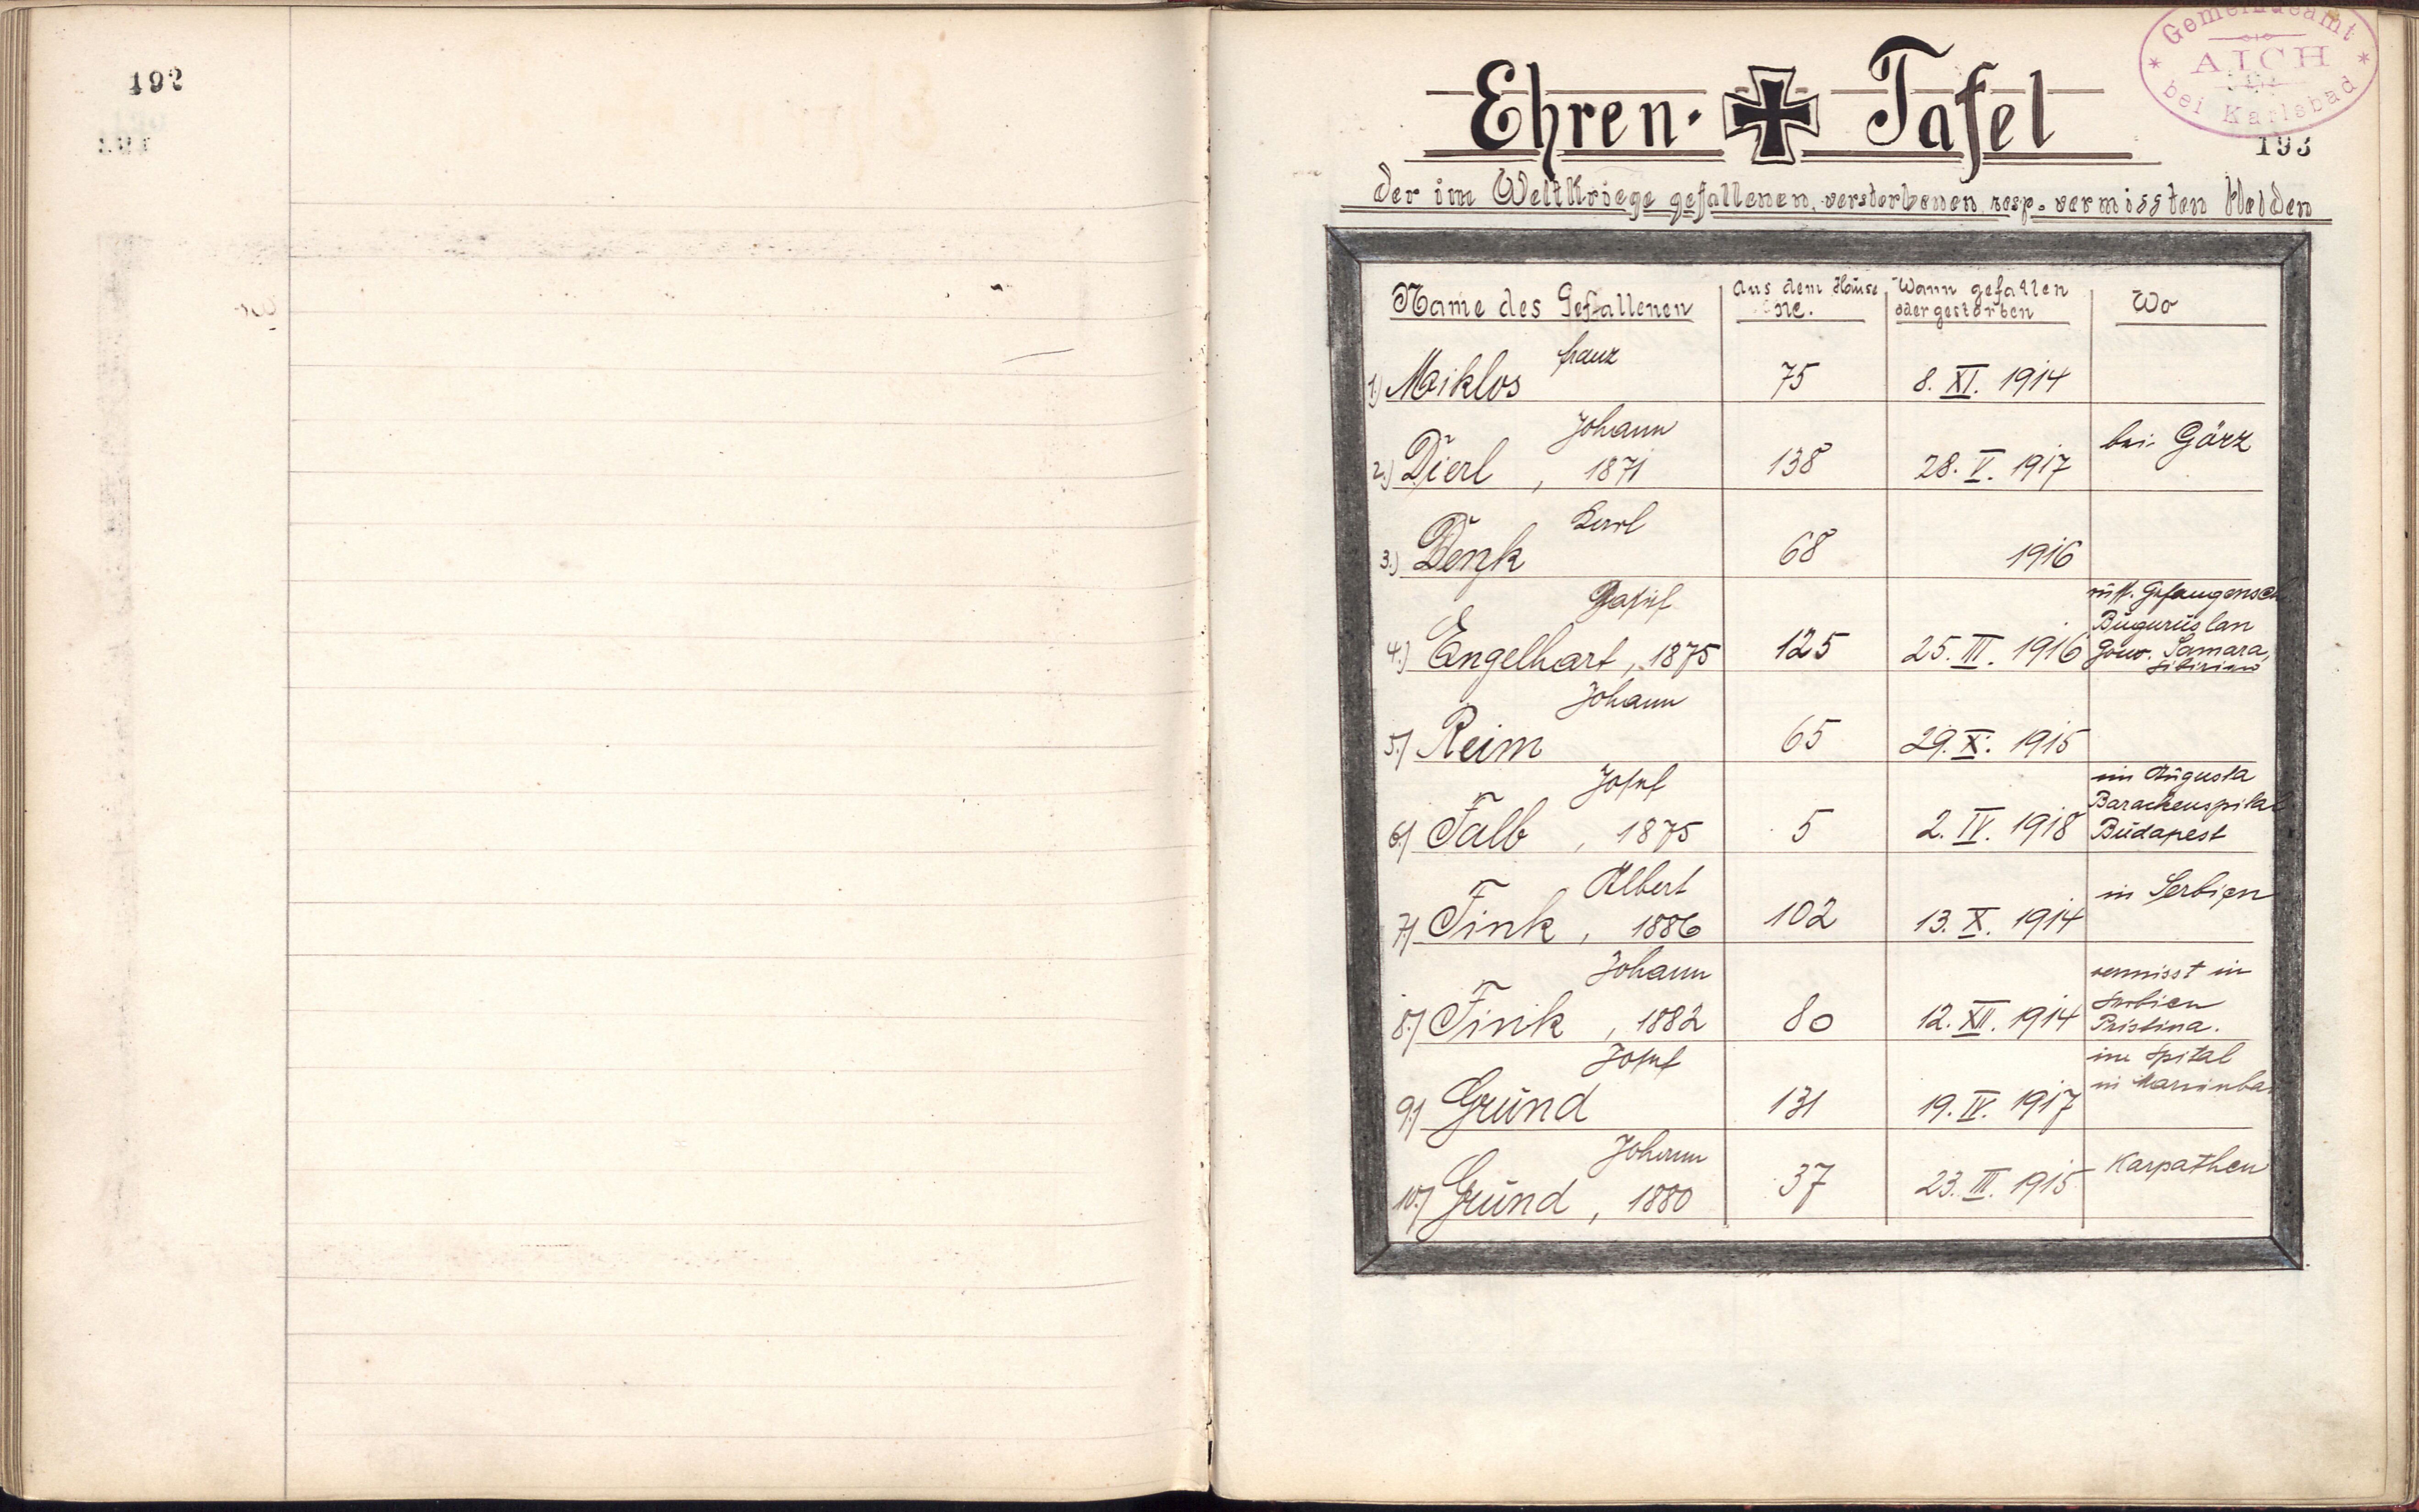 192
Gemeindeamt
AICH
bei Karlsbad
193
Ehren- Tafel
der im Weltkriege gefallenen, verstorbenen, resp. vermissten Helden
Name des Gefallenen
Aus dem Hause
Nr.
Wann gefallen
oder gestorben
Wo
Franz
1.) Maiklos 75 8. XI. 1914
Johann
2.) Dierl, 1871 138 28. V. 1917 bei Görz
Karl
3.) Denk 68 1916
Josef
4.) Engelhart, 1875 125 25. III. 1916
russ. Gefangensch
Buguruslan
Gouv. Samara,
Sibirien
Johann
5.) Reim 65 29. X. 1915
Josef
6.) Falb, 1875 5 2. IV. 1918
im Augusta
Barackenspital
Budapest
Albert
7.) Fink, 1886 102 13. X. 1914 in Serbien
Johann
8.) Fink, 1882 80 12. XII. 1914
vermisst in
Serbien
Pristina.
Josef
9.) Grund 131 19. IV. 1917
im Spital
in Marienba
Johann
10.) Grund, 1880 37 23. III. 1915 Karpathen